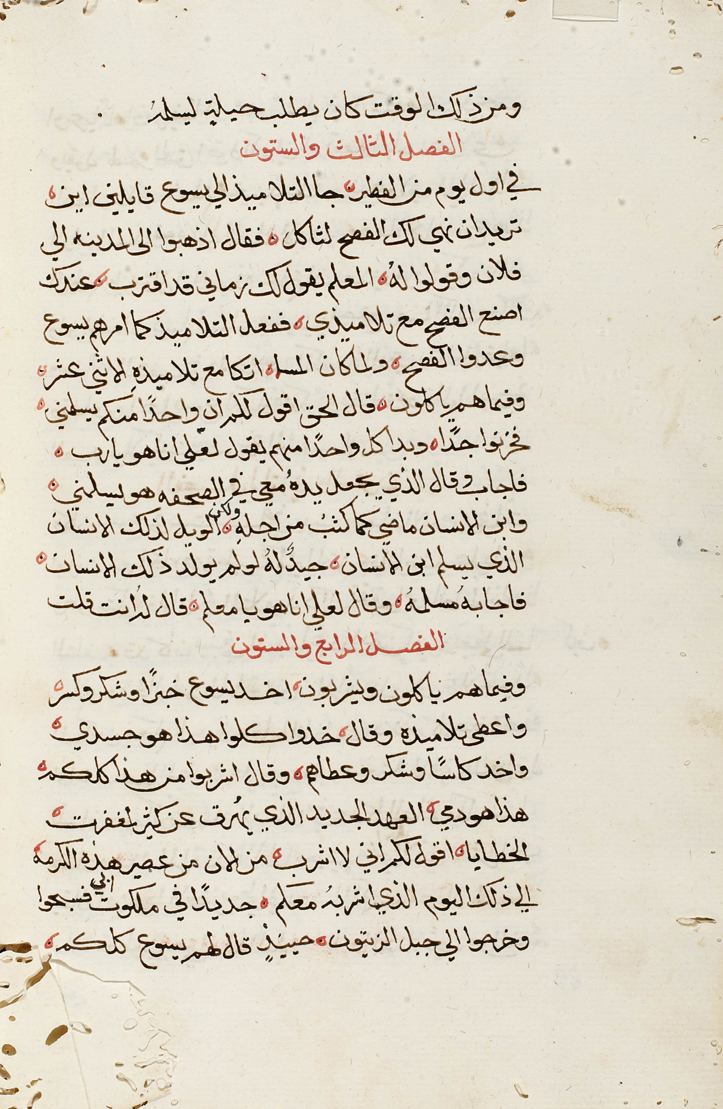 ومن ذلك الوقت كان يطلب حيلة ليسلمه
الفصل الثالث والستون
في اول يوم من الفطير جا التلاميذ الي يسوع قايلين اين
تريد ان نهي لك الفصح لتاكل فقال اذهبوا الى المدينه الي
فلان وقولوا له المعلم يقول لك زماني قد اقترب عندك
اصنع الفصح مع تلاميذي ففعل التلاميذ كما امرهم يسوع
وعدوا الفصح ولما كان المسا اتكا مع تلاميذه الاثني عشر
وفيما هم ياكلون قال الحق اقول لكم ان واحدًا منكم يسلمني
فحزنوا جدًا وبدا كل واحدًا منهم يقول لعلي انا هو يارب
فاجاب وقال الذي يجعل يده معي في الصحفه هو يسلمني
وابن الانسان ماضي كما كتب من اجله ولكن الويل لذلك الانسان
الذي يسلم ابن الانسان جيدٌ له لو لم يولد ذلك الانسان
فاجابه مسلمه وقال لعلي انا هو يا معلم قال له انت قلت
الفصل الرابع والستون
وفيما هم ياكلون ويشربون اخد يسوع خبزًا وشكر وكسر
واعطى تلاميذه وقال خدوا كلوا هذا هو جسدي
واخد كاسًا وشكر وعطاهم وقال اشربوا من هذا كلكم
هذا هو دمي العهد الجديد الذي يهرق عن كثير لمغفرت
الخطايا اقول لكم اني لا اشرب من الان من عصير هذه الكرمة
الي ذلك اليوم الذي اشربه معكم جديدًا في ملكوت ابي فسبحوا
وخرجوا الي جبل الزيتون حينيذٍ قال لهم يسوع كلكم